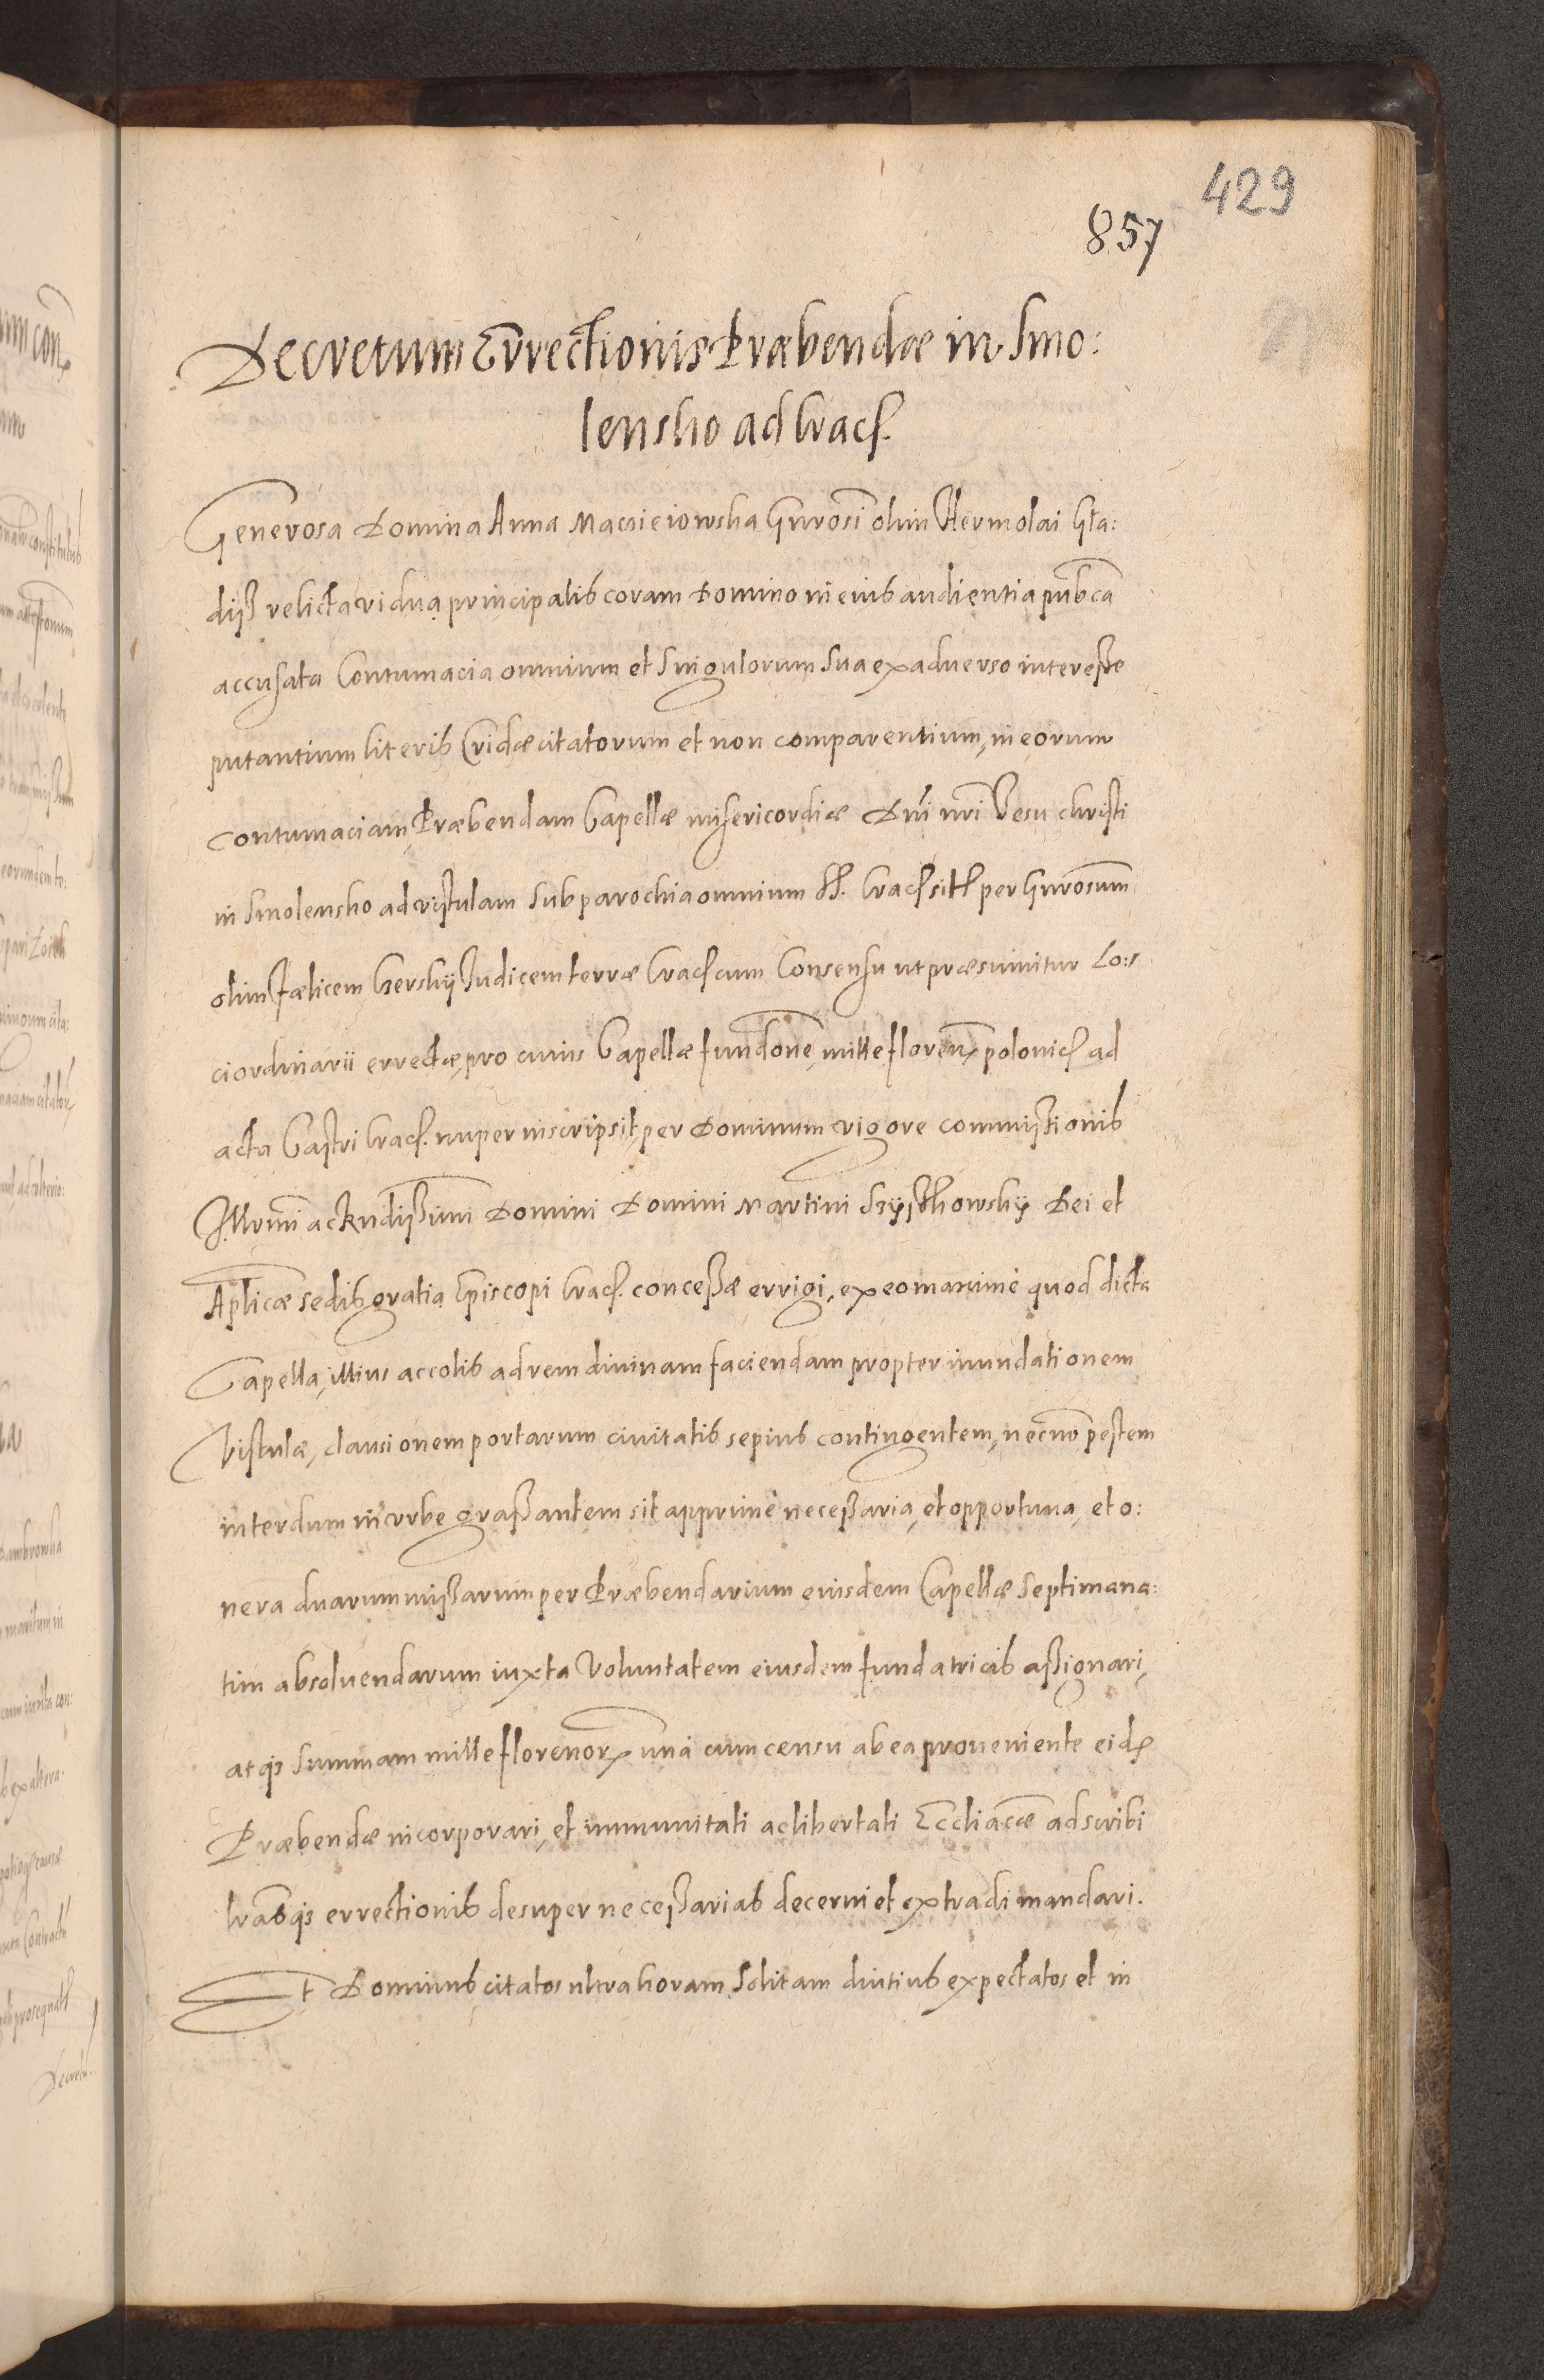 429
857
Decretum Errectionis Præbendæ in Smo:
lensko ad Crac.
Generosa Domina Anna Macieiowska Gnrosi olim Hermolai Gła:
diß relicta vidua principalis coram Domino in eius audientia pubca
accusata Contumacia omnium et Singulorum Sua ex aduerso intereße
putantium literis Cridæ citatorum et non comparentium, in eorum
contumaciam Præbendam Capellæ misericordiæ Dni nri Iesu christi
in Smolensko ad vistulam Sub parochia omnium SS. Crac sit per Gnrosum
olim Fælicem Czerskij Iudicem terræ Crac cum Consensu ut præsumitur Lo:
ci ordinarii errectæ, pro cuius Capellæ fundone, mille floren polonic ad
acta Castri Crac. nuper inscripsit, per Dominum vigore commißionis
Illrmi ac Rndißimi Domini Domini Martini Szyszkowskij Dei et
Aplicæ Sedis gratia Episcopi Crac. conceßæ errigi, ex eo maxime quod dicta
Capella, illius accolis ad rem diuinam faciendam propter inundationem
Vistulæ, clausionem portarum ciuitatis sepius contingentem, necno pestem
interdum in vrbe graßantem sit apprime neceßaria, et opportuna, et o:
nera duarum mißarum per Præbendarium eiusdem Capellæ Septimana:
tim absoluendarum iuxta Voluntatem eiusdem fundatricis aßignari,
atq Summam mille florenor una cum censu ab ea proueniente eid
Præbendæ incorporari, et immunitati ac libertati Eccliacæ adscribi
lrasq errectionis desuper neceßarias decerni et extradi mandari.
Et Dominus citatos ultra horam Solitam diutius expectatos et in